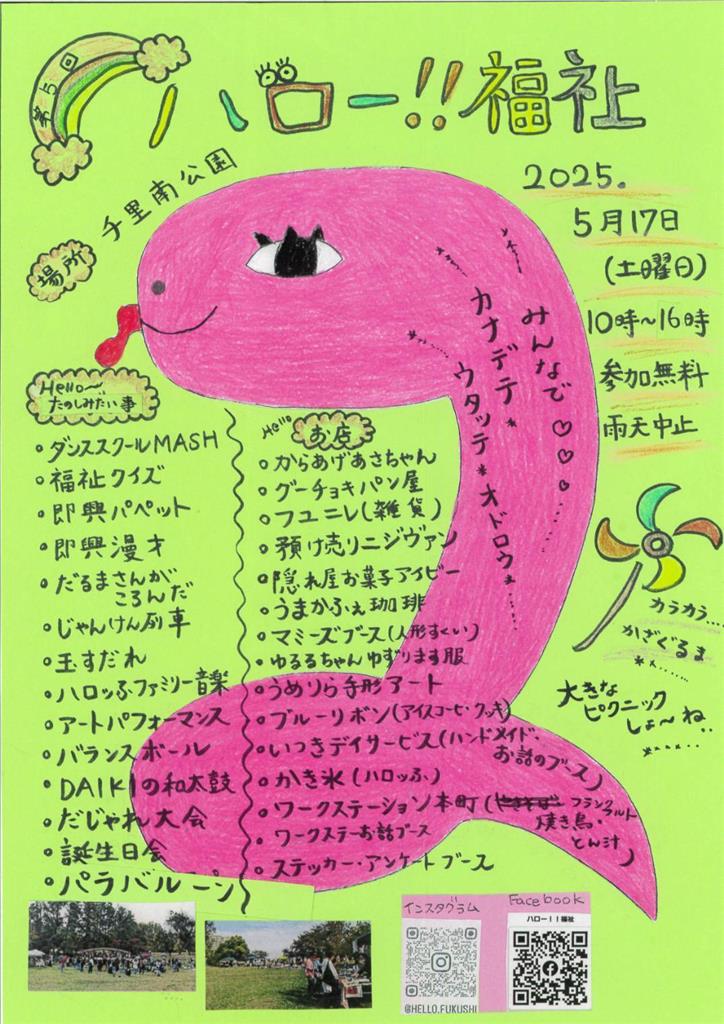 第5回
ハロー!!福祉
場所
千里南公園
2025.
5月17日
(土曜日)
10時~16時
参加無料
雨天中止
みんなで♡♡♡
カナデテ*
ウタッテ*オドロウ*
Hello~
たのしみたい事
・ダンススクールMASH
・福祉クイズ
・即興パペット
・即興漫才
・だるまさんが
ころんだ
・じゃんけん列車
・玉すだれ
・ハロッふファミリー音楽
・アートパフォーマンス
・バランスボール
・DAIKIの和太鼓
・だじゃれ大会
・誕生日会
・パラバルーン
Hello
お店
・からあげあさちゃん
・グーチョキパン屋
・フユニレ(雑貨)
・預け売りニジヴァン
・隠れ屋お菓子アイビー
・うまかふぇ珈琲
・マミーズブース(人形すくい)
・ゆるるちゃんゆずります服
・うめりら手形アート
・ブルーリボン(アイスコーヒ・クッキ)
・いつきデイサービス(ハンドメイド、
お話のブース)
・かき氷(ハロッふ)
・ワークステーション本町(やきそば フランクフルト
焼き鳥・
とん汁)
・ワークステーお話ブース
・ステッカー・アンケートブース
カラカラ…
かざぐるま
大きな
ピクニック
しょ〜ね
インスタグラム
@HELLO.FUKUSHI
Facebook
ハロー!!福祉